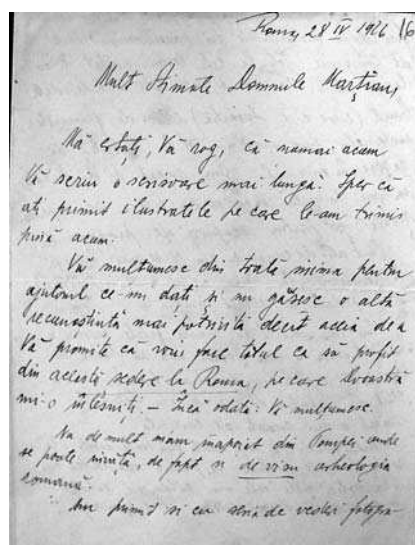 Roma, 28 IV 1926 16
Mult Stimate Domnule Marțian,
Mă ertați, Vă rog, că numai acum
Vă scriu o scrisoare mai lungă. Sper că
ați primit ilustratele pe care le-am trimis
până acum.
Vă multumesc din toată inima pentru
ajutorul ce-mi dați și nu găsesc o altă
recunoștință mai potrivită decît aceia de a
Vă promite că voiu face totul ca să profit
din această ședere la Roma, pe care Dvoastră
mi-o înlesniți. — Încă odată: Vă multumesc.
Nu de mult m'am înapoiat din Pompei unde
se poate învăța, de fapt și de visu arheologia
romană.
Am primit și eu de vederi fotogra-